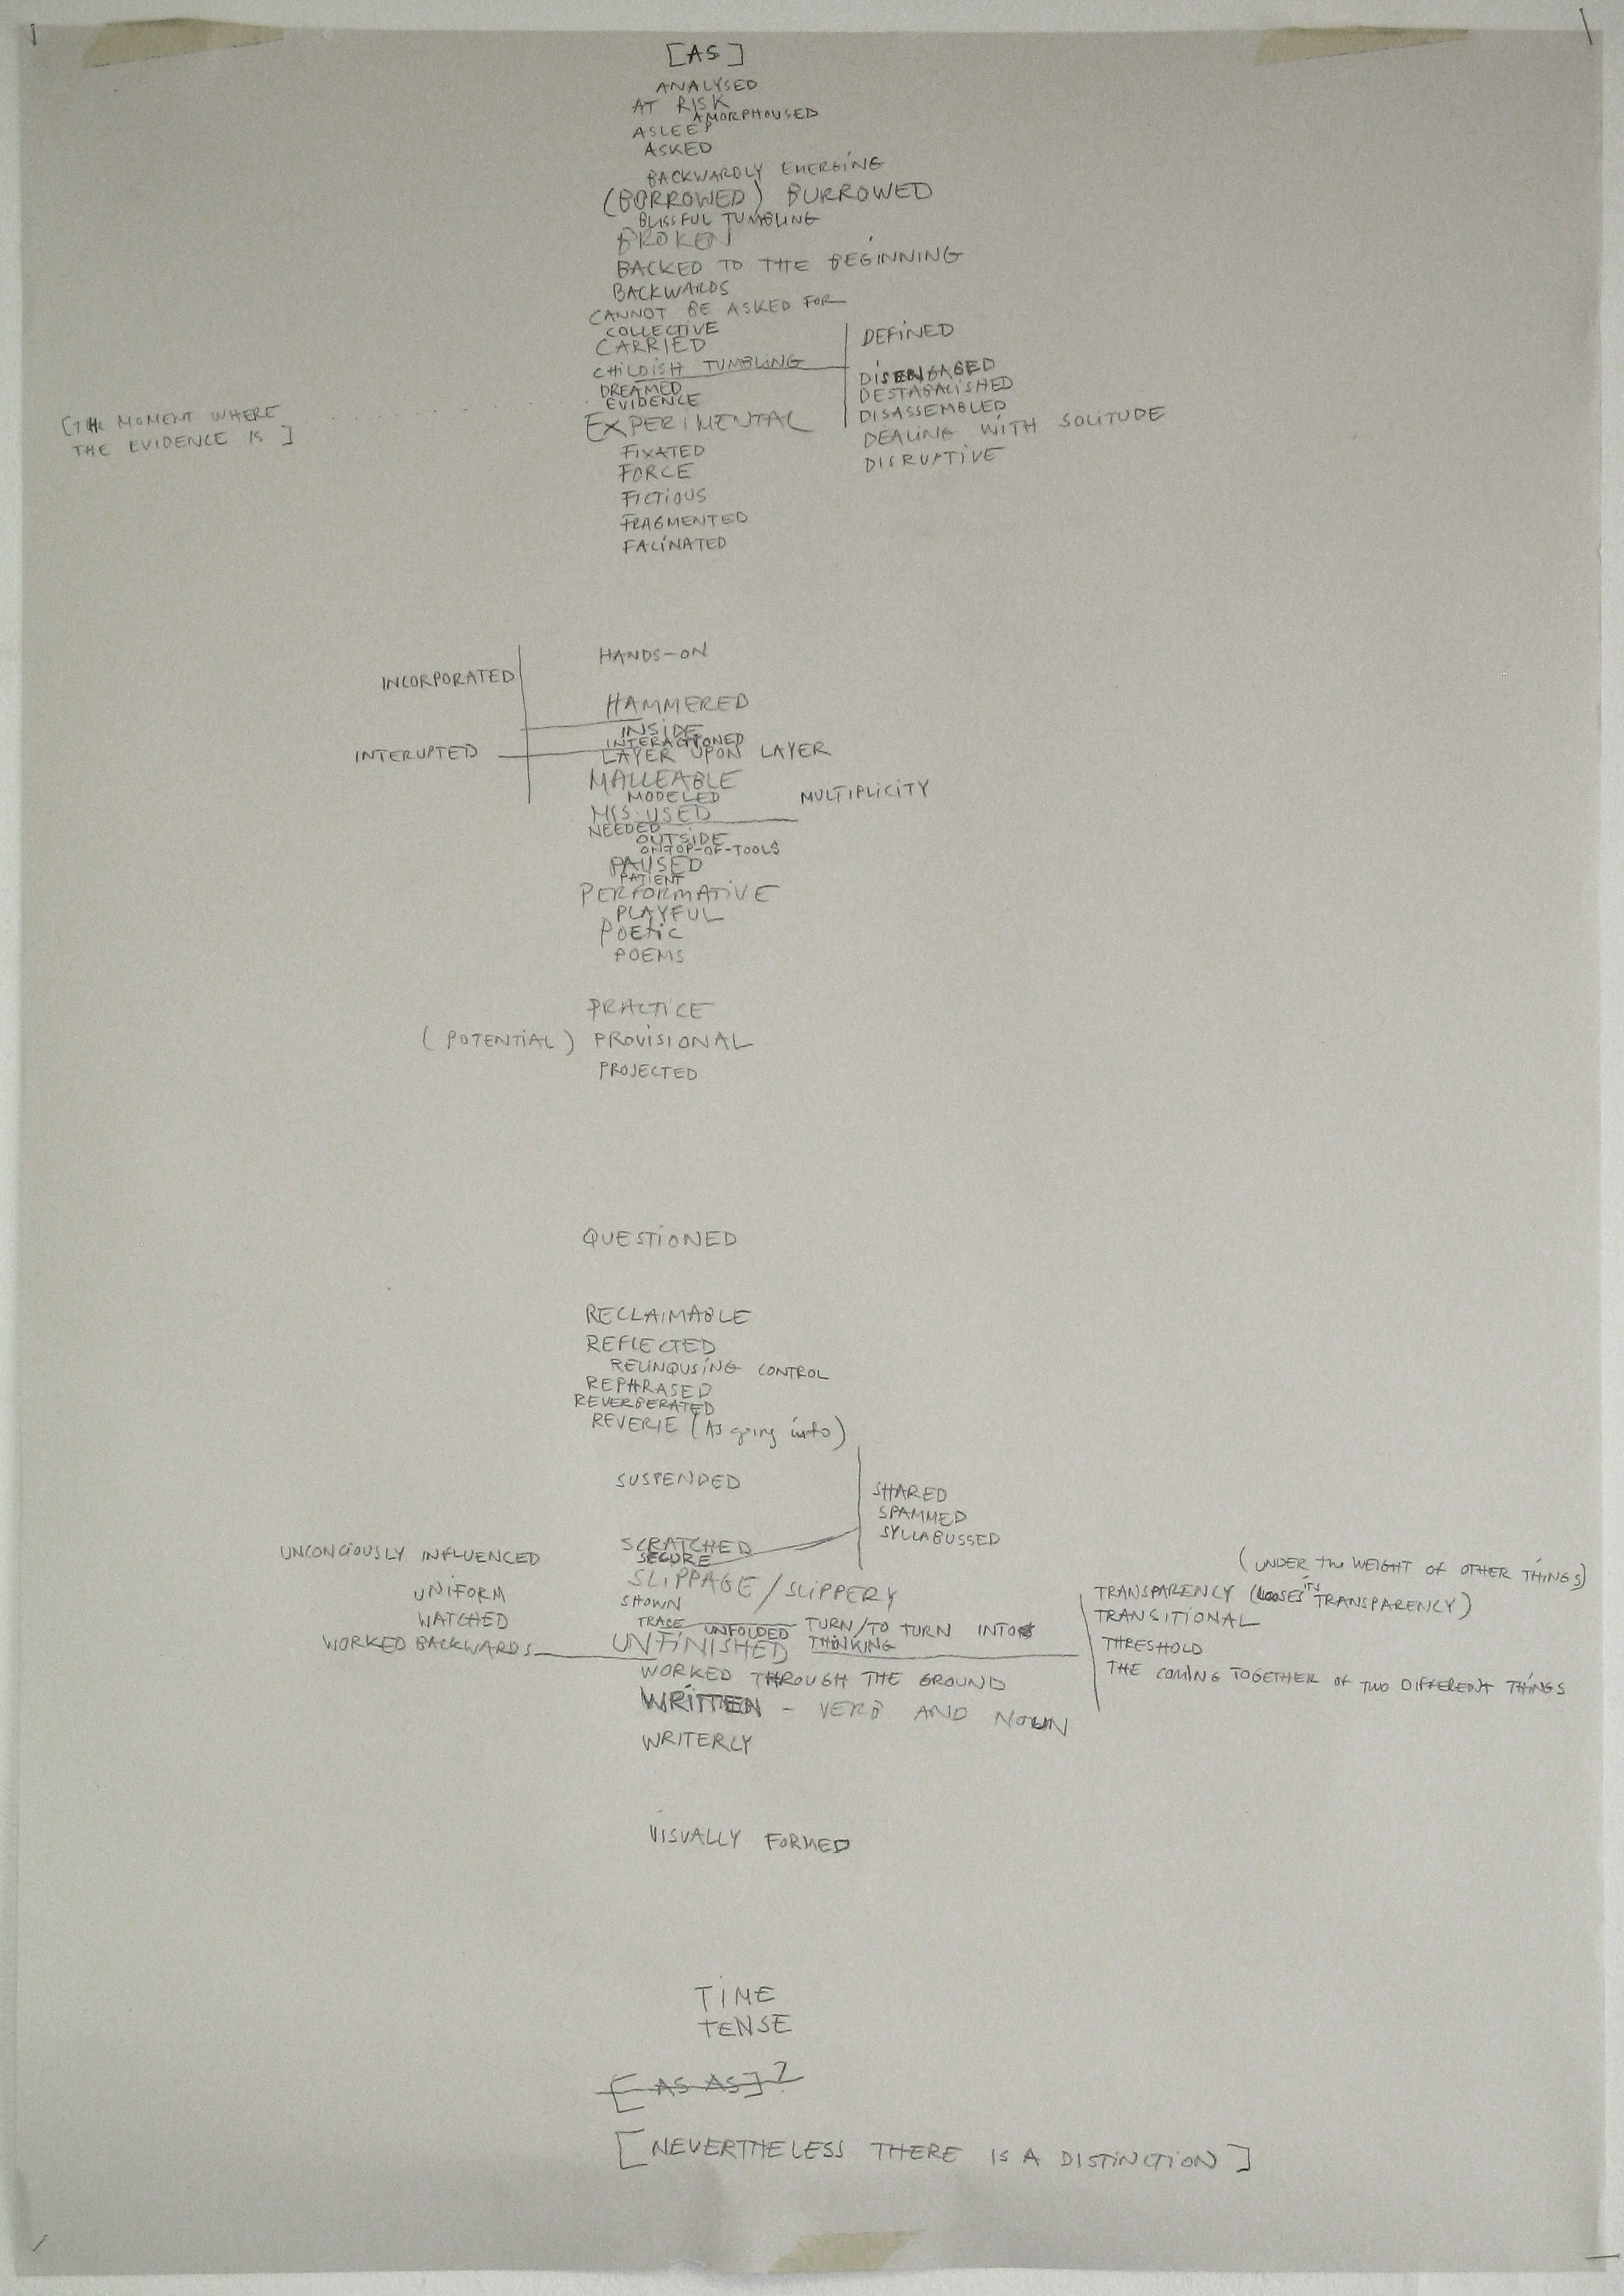 [AS]
ANALYSED
AT RISK
AMORPHOUSED
ASLEEP
ASKED
BACKWARDLY EMERGING
(BORROWED) BURROWED
BLISSFUL TUMBLING
BROKEN
BACKED TO THE BEGINNING
BACKWARDS
CANNOT BE ASKED FOR
COLLECTIVE
CARRIED
CHILDISH TUMBLING
DEFINED
DISENGAGED
DESTABALISHED
DISASSEMBLED
DEALING WITH SOLITUDE
DISRUPTIVE
DREAMED
EVIDENCE
[THE MOMENT WHERE
THE EVIDENCE IS]
EXPERIMENTAL
FIXATED
FORCE
FICTIOUS
FRAGMENTED
FACINATED
HANDS-ON
INCORPORATED
HAMMERED
INSIDE
INTERACTIONED
INTERUPTED
LAYER UPON LAYER
MALLEABLE
MODELED
MULTIPLICITY
MIS-USED
NEEDED
OUTSIDE
ON-TOP-OF-TOOLS
PAUSED
PATIENT
PERFORMATIVE
PLAYFUL
POETIC
POEMS
PRACTICE
(POTENTIAL) PROVISIONAL
PROJECTED
QUESTIONED
RECLAIMABLE
REFLECTED
RELINQUSING CONTROL
REPHRASED
REVERBERATED
REVERIE (As going into)
SUSPENDED
SHARED
SPAMMED
SYLLABUSSED
SCRATCHED
SECURE
SLIPPAGE / SLIPPERY
SHOWN
TRACE UNFOLDED TURN/TO TURN INTO
UNFINISHED THINKING
UNCONCIOUSLY INFLUENCED
UNIFORM
WATCHED
WORKED BACKWARDS
(UNDER the WEIGHT OF OTHER THINGS)
TRANSPARENCY (LOOSES ITS TRANSPARENCY)
TRANSITIONAL
THRESHOLD
THE COMING TOGETHER OF TWO DIFFERENT THINGS
WORKED THROUGH THE GROUND
WRITTEN - VERB AND NOUN
WRITERLY
VISUALLY FORMED
TIME
TENSE
[AS AS]?
[NEVERTHELESS THERE IS A DISTINCTION]